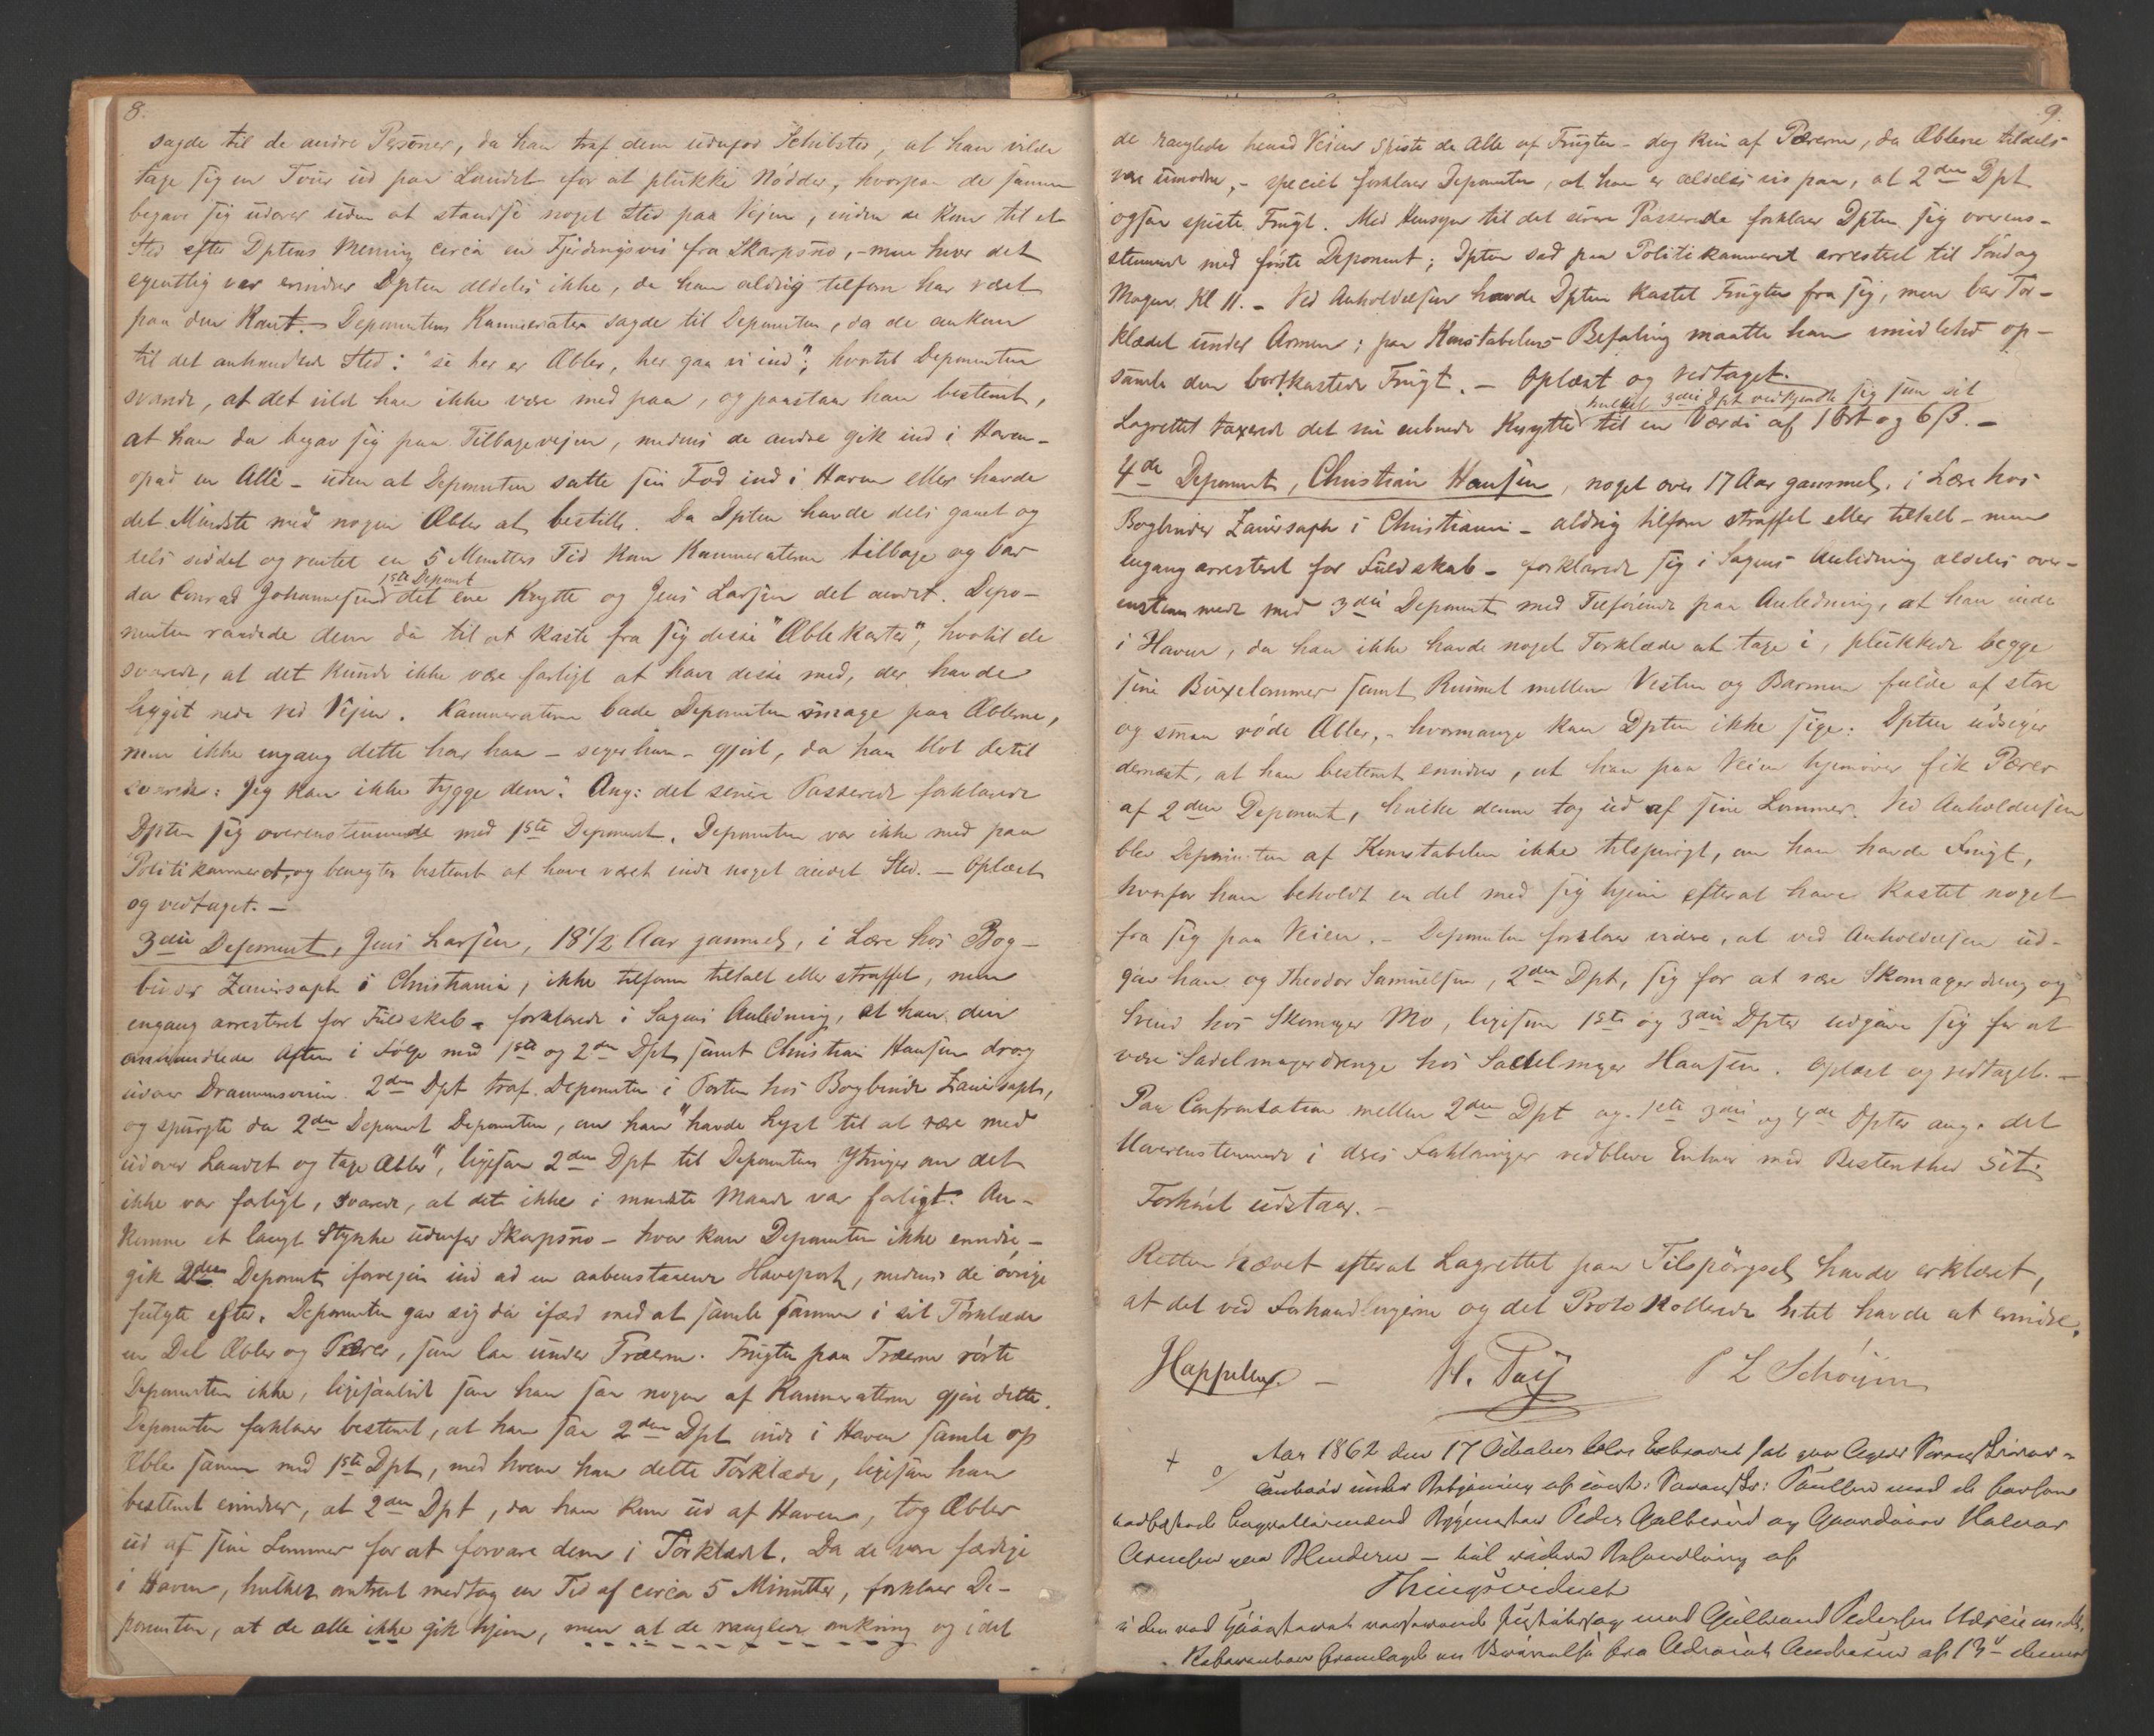 8.
sagde til de andre Personer, da han traf dem udenfor Schibsted, at han vilde
tage sig en Tour ud paa Landet for at plukke Nødder, hvorpaa de sammen
begave sig udover uden at standse noget Sted paa Vejen, inden de kom til et
Sted efter Dptens Mening circa en Fjerdingsvei fra Skarpsno, - men hvor det
egentlig var erindrer Dpten aldeles ikke, da han aldrig tilforn har været
paa den Kant. - Deponentens Kammerater sagde til Deponenten, da de ankom
til det anhandlede Sted: "se her er Æbler, her gaa vi ind"; hvortil Deponenten
svarede, at det vilde han ikke være med paa, og paastaar han bestemt,
at han da begav sig paa Tilbagevejen, medens de andre gik ind i Haven -
opad en Allé - uden at Deponenten satte sin Fod ind i Haven eller havde
det Mindste med nogen Æbler at bestille. Da Dpten havde dels gaaet og
dels siddet og ventet en 5 Minutters Tid kom Kammeraterne tilbage og bar
1ste Deponent
da Conrad Johannesen det ene Knytte og Jens Larsen det andet. Depo-
nenten raadede dem da til at kaste fra sig disse "Æblekarter", hvortil de
svarede, at det kunde ikke være farligt at have disse med, der havde
ligget nede ved Vejen. Kammeraterne bade Deponenten smage paa Æblerne,
men ikke engang dette har han - siger han - gjort, da han blot dertil
svarede: "Jeg kan ikke tygge dem". Ang: det senere Passerede forklarede
Dpten sig overensstemmende med 1ste Deponent. Deponenten var ikke med paa
Politikammeret, og benegter bestemt at have været inde noget andet Sted. - Oplæst
og vedtaget. -
3die Deponent, Jens Larsen, 18 1/2 Aar gammel, i Lære hos Bog-
binder Zanirsaph i Christiania, ikke tilforn tiltalt eller straffet, men
engang arresteret for Fuldskab - forklarede i Sagens Anledning, at han den
omhandlede Aften i Følge med 1ste og 2den Dpt samt Christian Hansen drog
udover Drammensveien. 2den Dpt traf Deponenten i Porten hos Bogbinder Zanirsaph,
og spurgte da 2den Deponent Deponenten, om han "havde Lyst til at være med
udover Landet og tage Æbler", ligesom 2den Dpt til Deponentens Ytringer om det
ikke var farligt, svarede, at det ikke i mindste Maade var farligt. An-
komne et langt Stykke udenfor Skarpsno - hvor kan Deponenten ikke erindre -
gik 2den Deponent iforvejen ind ad en aabenstaaende Haveport, medens de øvrige
fulgte efter. Deponenten gav sig da ifærd med at samle sammen i sit Tørklæde
en Del Æbler og Pærer, som laa under Træerne. Frugten paa Træerne rørte
Deponenten ikke, ligesaalidt som han saa nogen af Kammeraterne gjøre dette.
Deponenten forklarer bestemt, at han saa 2den Dpt inde i Haven samle op
Æbler sammen med 1ste Dpt, med hvem han dette Tørklæde, ligesom han
bestemt erindrer, at 2den Dpt, da han kom ud af Haven, tog Æbler
ud af sine Lommer for at forvare dem i Tørklædet. Da de vare færdige
i Haven, hvilket omtrent medtog en Tid af circa 5 Minutter, forklarer De-
ponenten, at de alle ikke gik hjem, men at de ranglede omkring og idet
9.
de ranglede henad Veien spiste de Alle af Frugten - dog kun af Pærerne, da Æblerne tildels
vare umodne, - speciel forklarer Deponenten, at han er aldeles vis paa, at 2den Dpt
ogsaa spiste Frugt. Med Hensyn til det senere Passerede forklarer Dpten sig overens-
stemmende med første Deponent; Dpten sad paa Politikammeret arresteret til Søndag
Morgen Kl 11. - Ved Anholdelsen havde Dpten kastet Frugten fra sig, men bar Tør-
klædet under Armen; paa Konstabelens Befaling maatte han imidlertid op-
samle den bortkastede Frugt. - Oplæst og vedtaget.
hvilket 3die Dpt vedkjendte sig som sit
Lagrettet taxerede det nu aabnede Knytte til en Værdi af 1 Ort og 6 ß. -
4de Deponent, Christian Hansen, noget over 17 Aar gammel, i Lære hos
Bogbinder Zanirsaph i Christiania - aldrig tilforn straffet eller tiltalt - men
engang arresteret for Fuldskab - forklarede sig i Sagens Anledning aldeles over-
ensstemmende med 3die Deponent med Tilføiende paa Anledning, at han inde
i Haven, da han ikke havde noget Tørklæde at tage i, plukkede begge
sine Buxelommer samt Rummet mellem Vesten og Barmen fulde af store
og smaa røde Æbler, - hvormange kan Dpten ikke sige. Dpten udsiger
dernæst, at han bestemt erindrer, at han paa Veien hjemover fik Pærer
af 2den Deponent, hvilke denne tog ud af sine Lommer. Ved Anholdelsen
blev Deponenten af Konstabelen ikke tilspurgt, om han havde Frugt,
hvorfor han beholdt en del med sig hjem efterat have kastet noget
fra sig paa Veien. - Deponenten forklarer videre, at ved Anholdelsen ud-
gav han og Theodor Samuelsen, 2den Dpt, sig for at være Skomagerdreng og
Svend hos Skomager Mo, ligesom 1ste og 3die Dpter udgave sig for at
være Sadelmagerdrenge hos Sadelmager Hansen. Oplæst og vedtaget. -
Paa Confrontation mellem 2den Dpt og 1ste 3die og 4de Dpter ang. det
Uoverensstemmende i deres Forklaringer vedbleve Enhver med Bestemthed sit.
Forhøret udstaar. -
Retten hævet efterat Lagrettet paa Tilspørgsel havde erklæret,
at det ved Forhandlingerne og det Protokollerede Intet havde at erindre.
P L Schøyen
Aar 1862 den 17 October blev Extraret sat paa Agers
under Betjening af const:
Lagrettesmænd Peder og Gaardbruger Halvor
paa Blindern - til videre Behandling af
Thingsvidnet
i den ved mod Gulbrand Pedersen
fremlagde en fra af 13de dennes